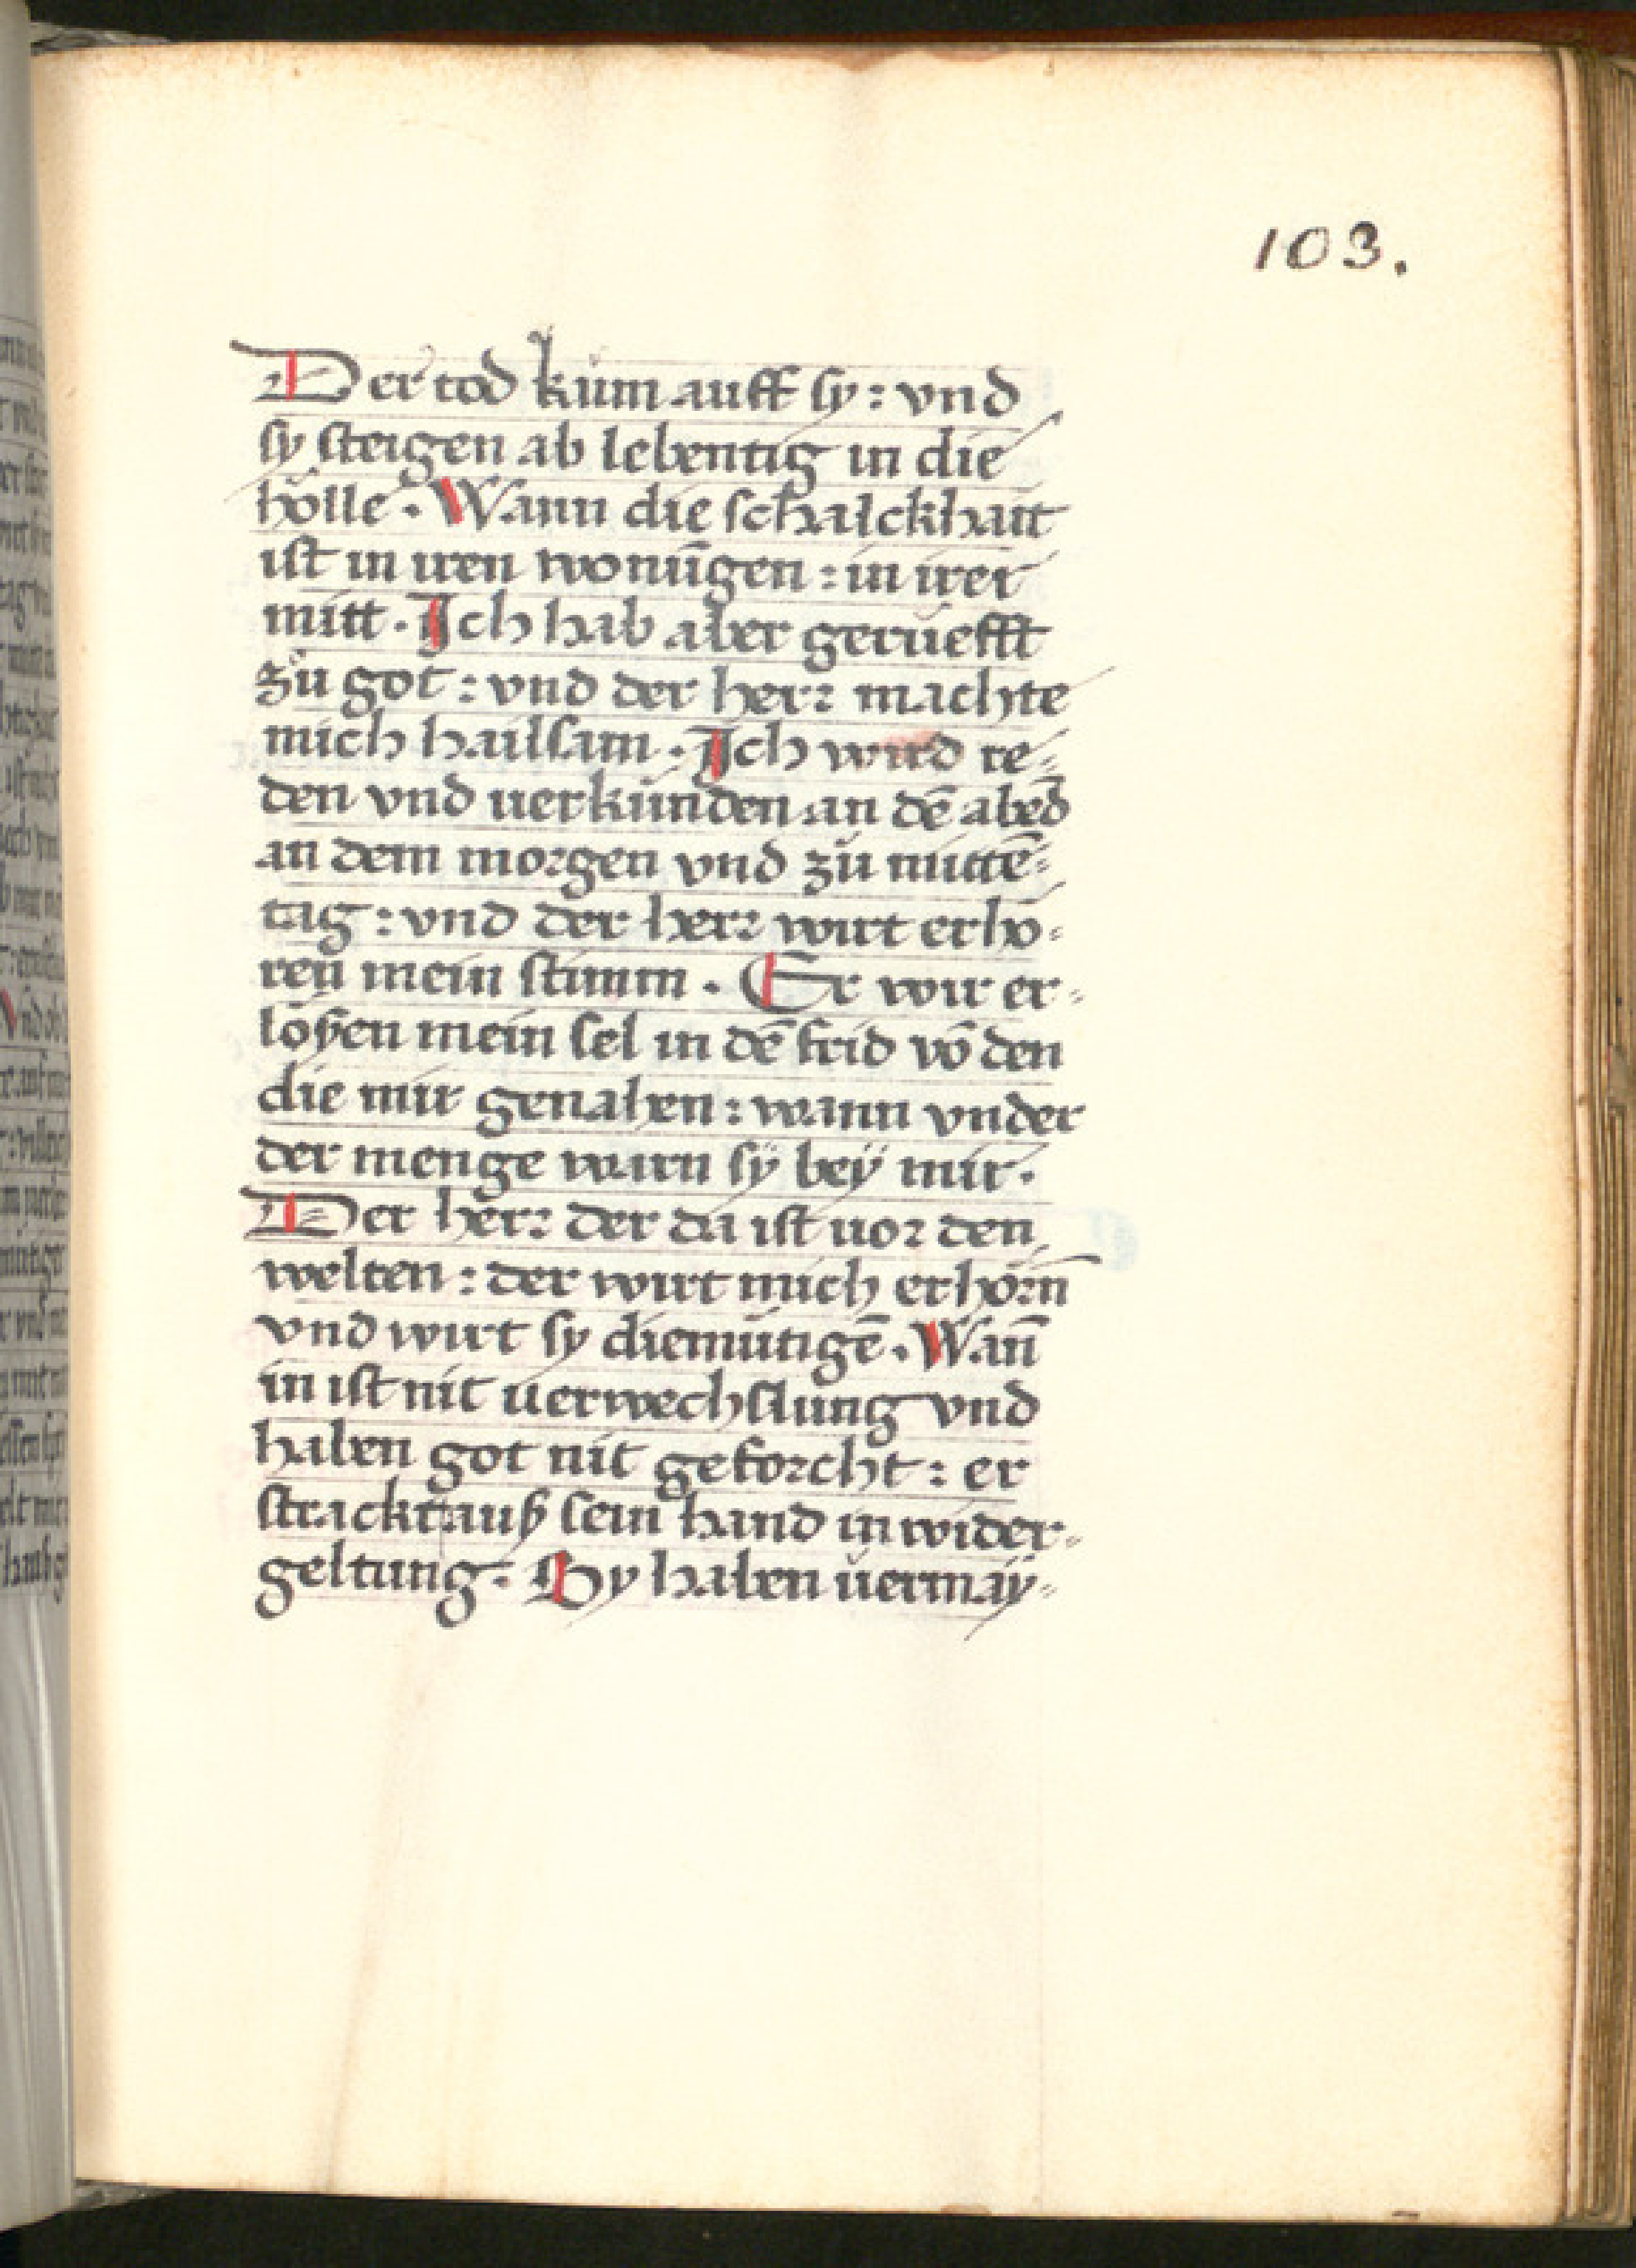 103.
Der tod kům auff sy : vnd
sy steigen ab lebentig in die
hölle . Wann die schalckhait
ist in iren wonūgen : in irer
mitt . Ich hab aber gerüefft
zů got : vnd der herr machte
mich hailsam . Ich wird re⸗
den vnd uerkünden an dē abēd
an dem morgen vnd zů mittē⸗
tag : vnd der herr wirt erhö⸗
ren mein stimm . Er wir er⸗
lößen mein sel in dē frid vō den
die mir genahen : wann vnder
der menge warn sÿ beÿ mir .
Der herr der da ist uor den
welten : der wirt mich erhörn̄
vnd wirt sy diemütigē . Wan̄
in ist nit uerwechslung vnd
haben got nit geforcht : er
strackt auß sein hand in wider⸗
geltung . Sy haben uermäÿ⸗